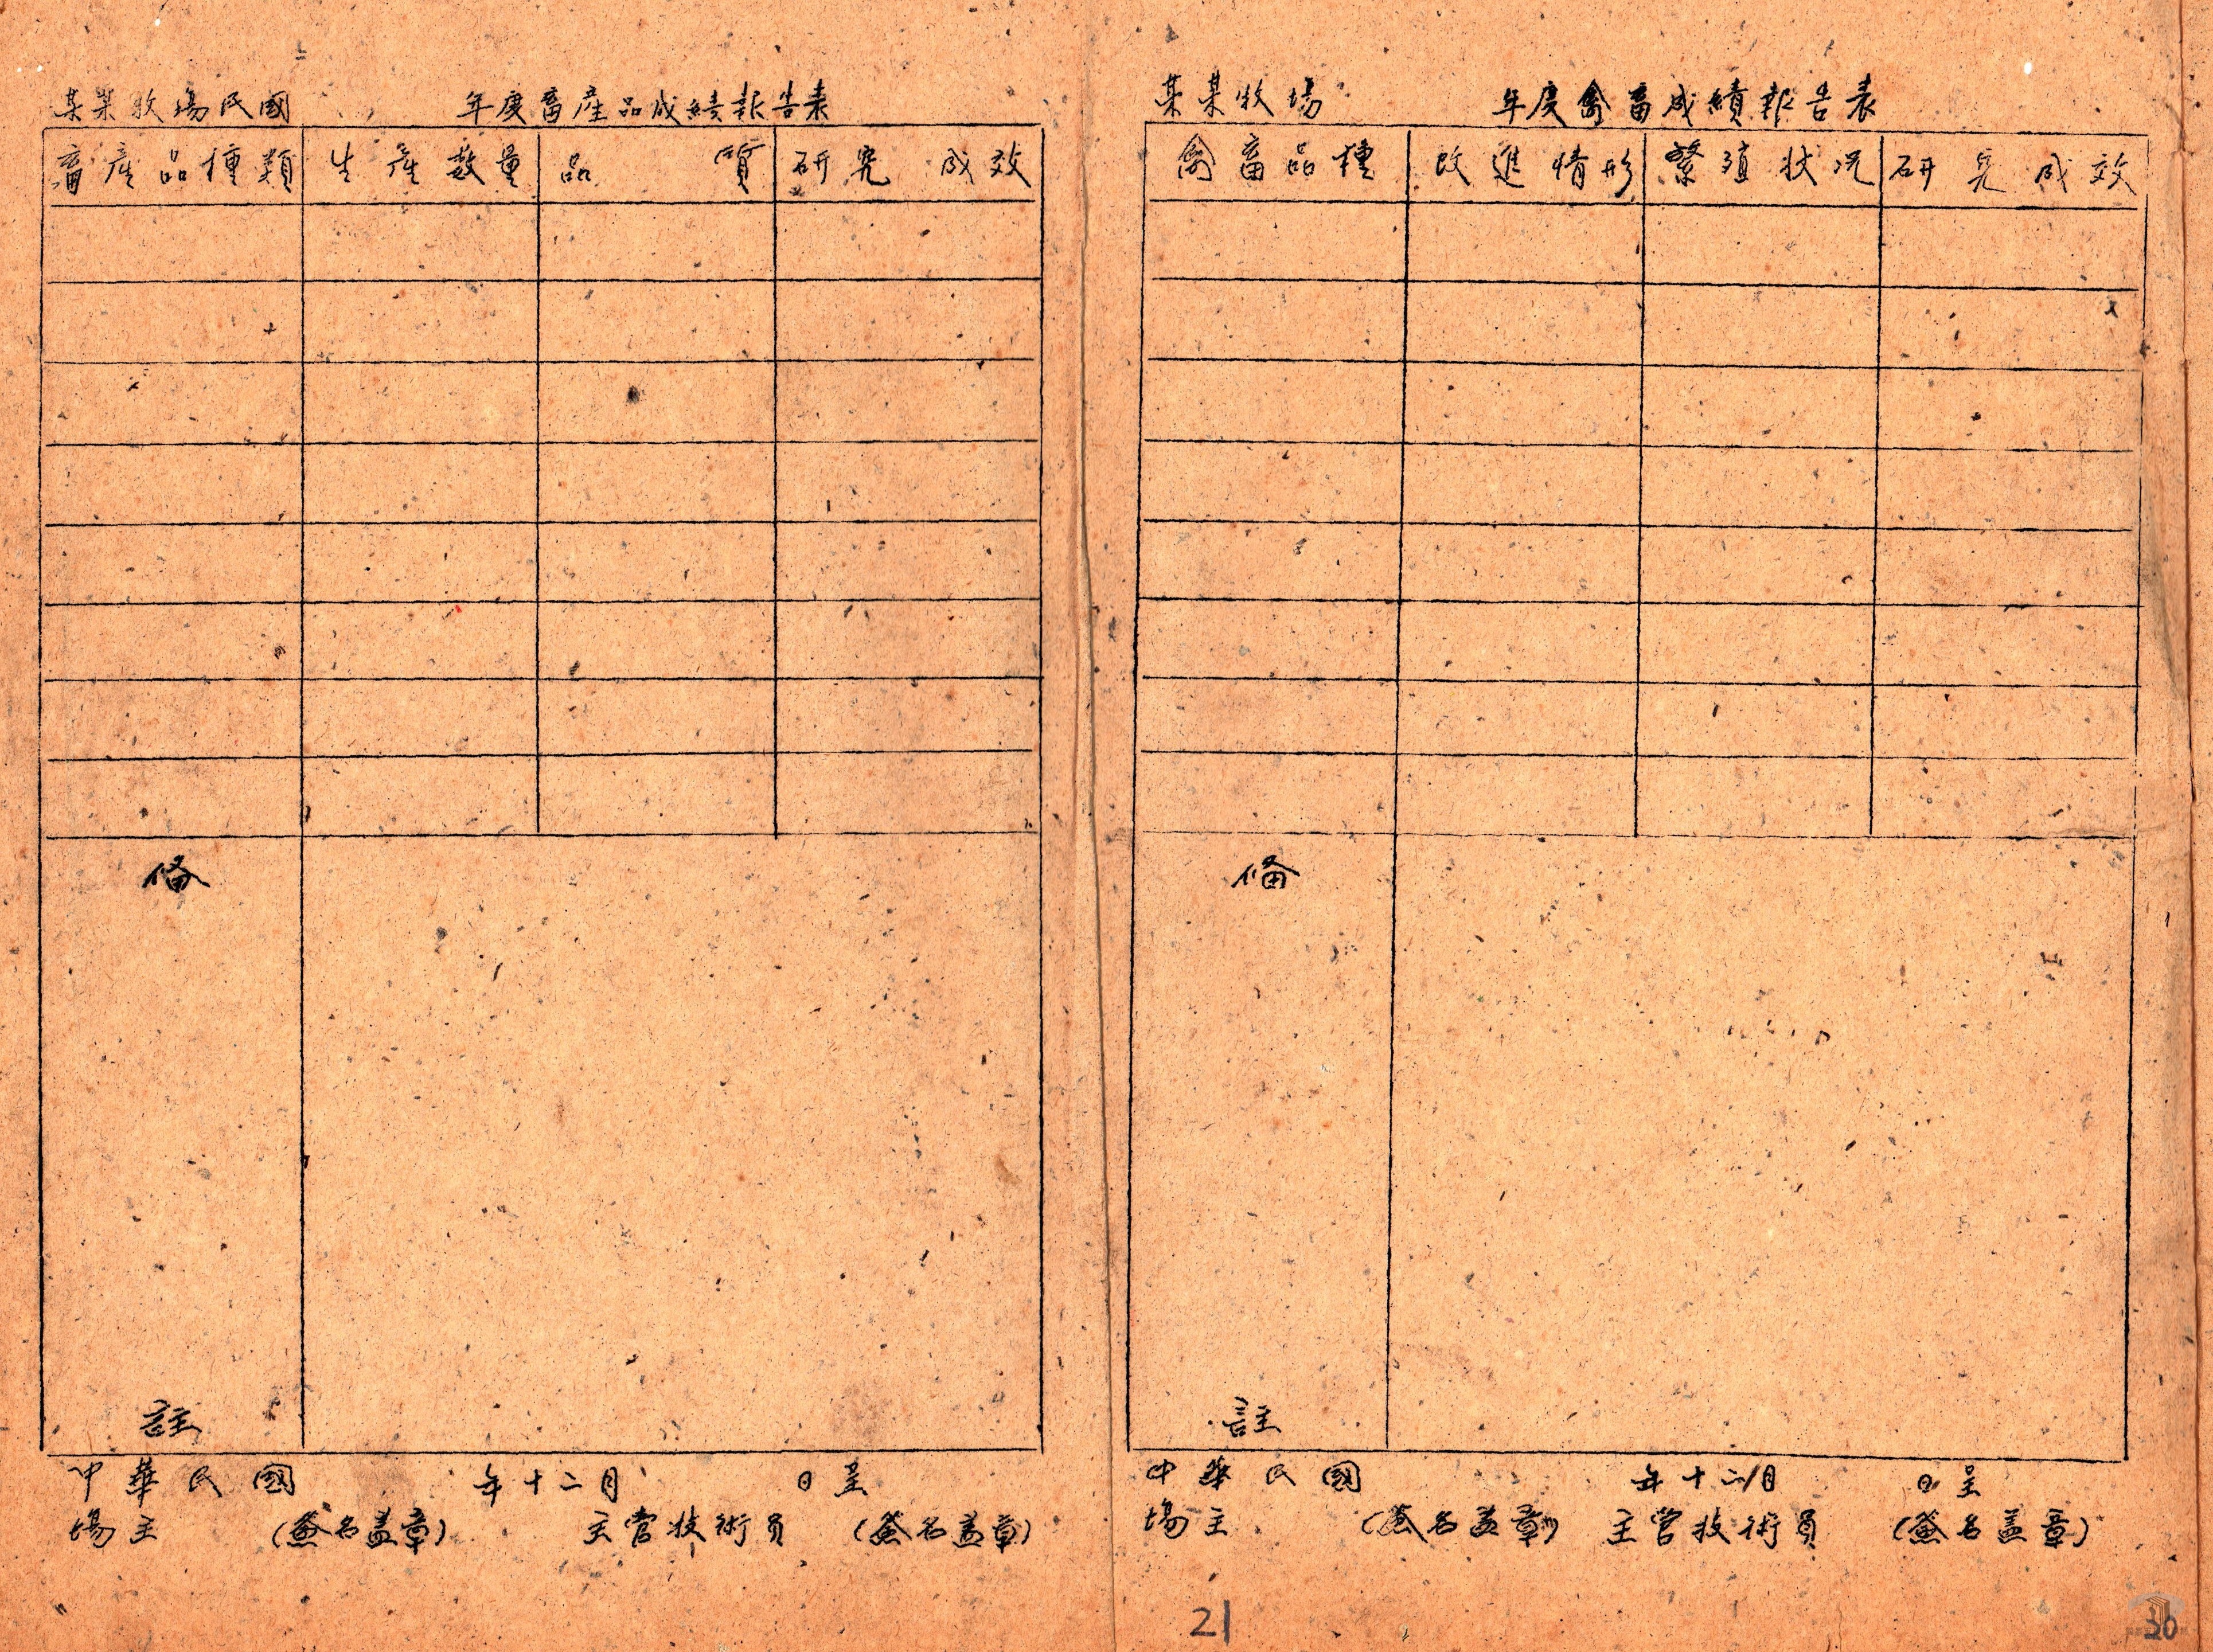 某某牧場民國 年度畜產品成績報告表
畜產品種類 生產數量 品質 研究成效
備註
中華民國 年十二月 日呈
場主 (簽名蓋章) 主管技術員 (簽名蓋章)
某某牧場 年度禽畜成績報告表
禽畜品種 改進情形 繁殖狀況 研究成效
備註
中華民國 年十二月 日呈
場主 (簽名蓋章) 主管技術員 (簽名蓋章)
21
30